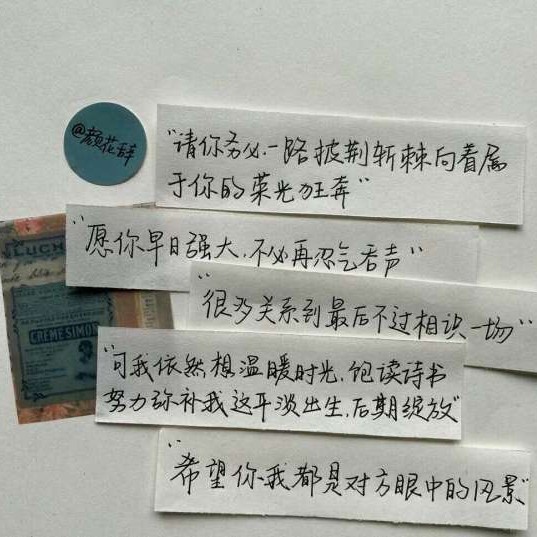 @颜花辞
"请你务必一路披荆斩棘向着属
于你的荣光狂奔"
"愿你早日强大,不必再忍气吞声"
"很多关系到最后不过相识一场"
"可我依然想温暖时光,饱读诗书
努力弥补我这平淡出生,后期绽放"
"希望你我都是对方眼中的风景"
LUCH
CREME SIMON